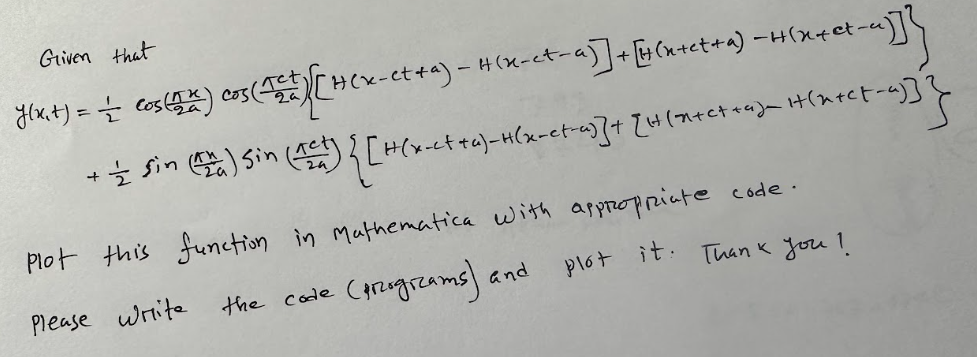 Given that
y(x,t) = 1/2 cos(πx/2a) cos(πct/2a) {[H(x-ct+a) - H(x-ct-a)] + [H(x+ct+a) - H(x+ct-a)]}
+ 1/2 sin(πx/2a) sin(πct/2a) {[H(x-ct+a)-H(x-ct-a)] + [H(x+ct+a)-H(x+ct-a)]}
Plot this function in Mathematica with appropriate code.
Please write the code (programs) and plot it. Thank you!